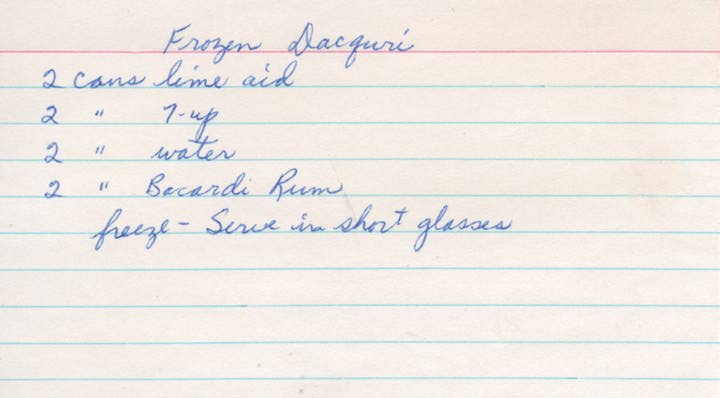 Frozen Dacquri
2 cans lime aid
2 " 7-up
2 " water
2 " Bacardi Rum
freeze - Serve in short glasses